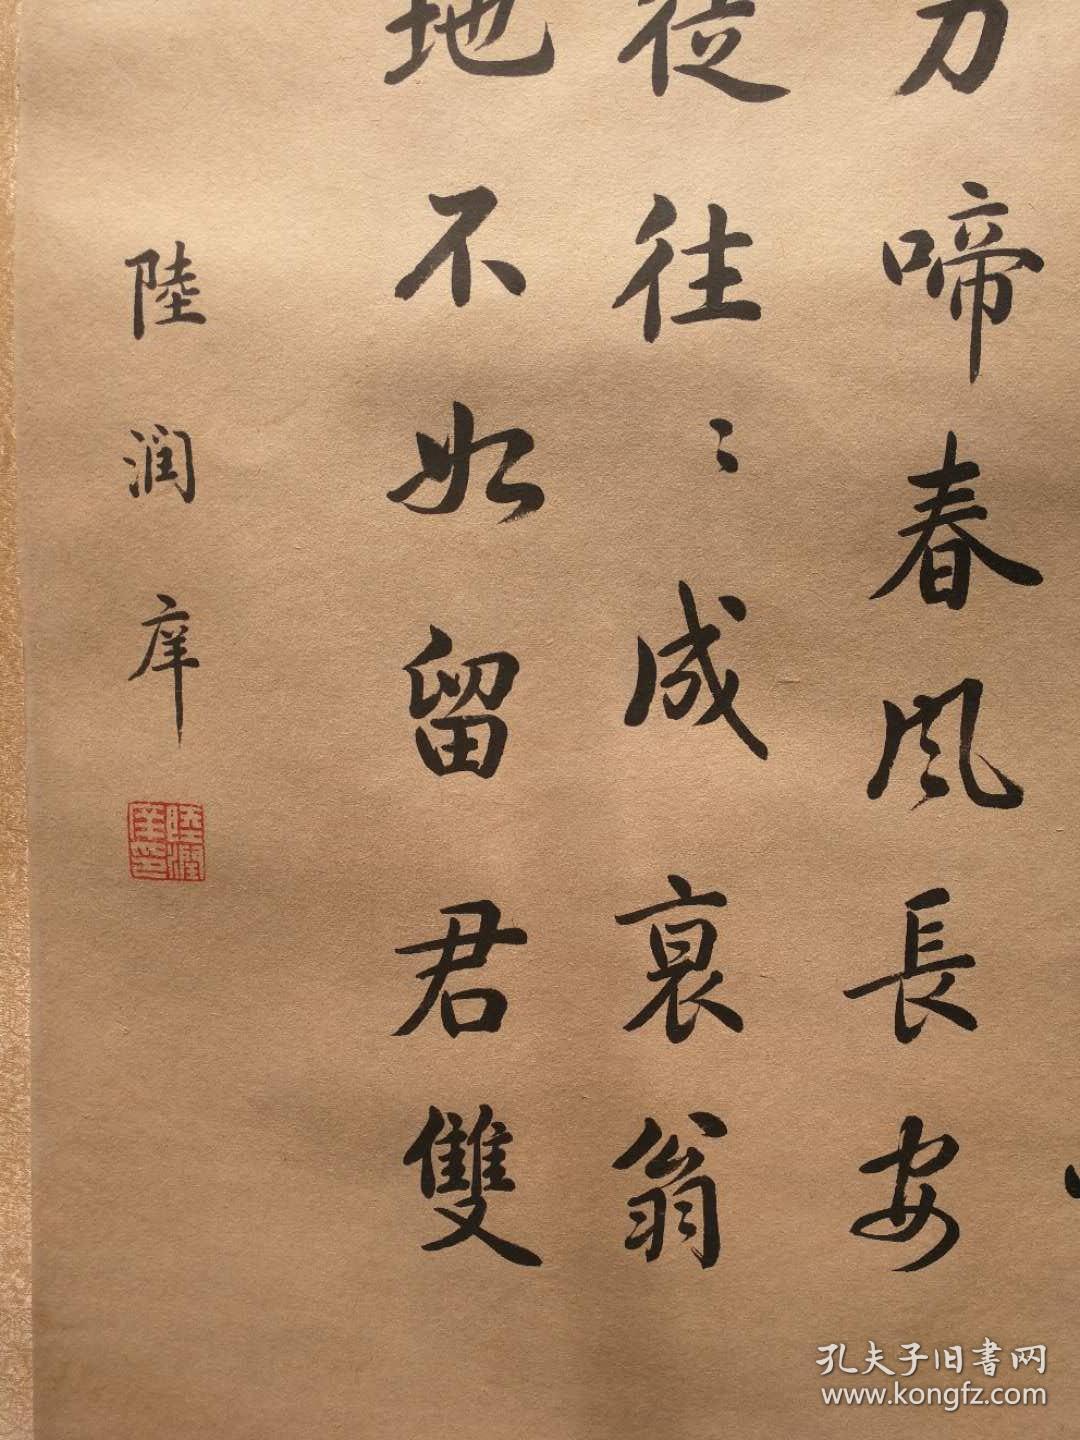 力啼春风長安
従往々成衰翁
地不如留君雙
陸润庠
陸潤庠印
孔夫子旧書网
www.kongfz.com